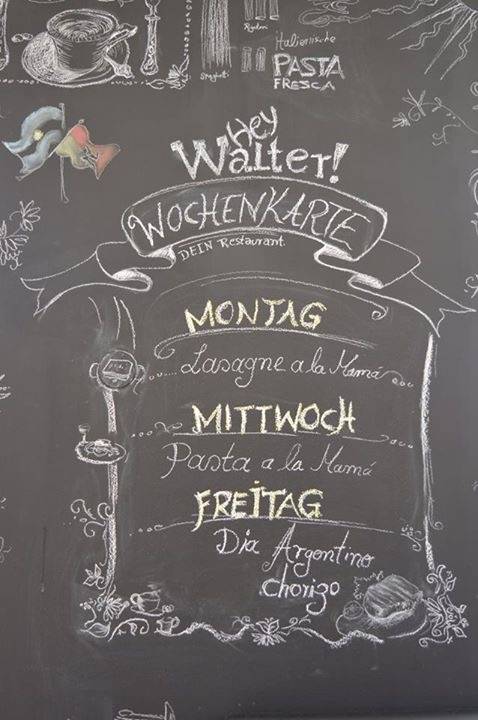 Rigatoni
Spaghetti
Italienische
PASTA
FRESCA
HEY
Walter!
WOCHENKARTE
DEIN Restaurant
MONTAG
Lasagne a la Mamá
MITTWOCH
Pasta a la Mamá
FREITAG
Día Argentino
chorizo